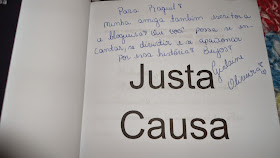 Para Raquel,
minha amiga também escritora
e blogueira! Que você possa se en-
cantar, se divertir e se apaixonar
por essa história! Beijos!
Gislaine
Oliveira
Justa
Causa